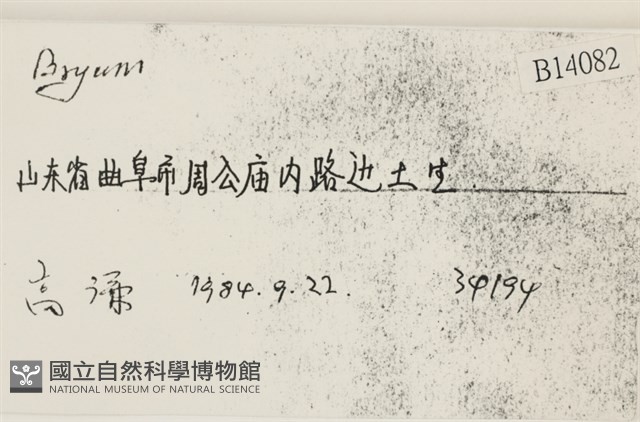 Bryum
B14082
山东省曲阜市周公庙内路边土生
高谦 1984.9.22. 34194
國立自然科學博物館
NATIONAL MUSEUM OF NATURAL SCIENCE